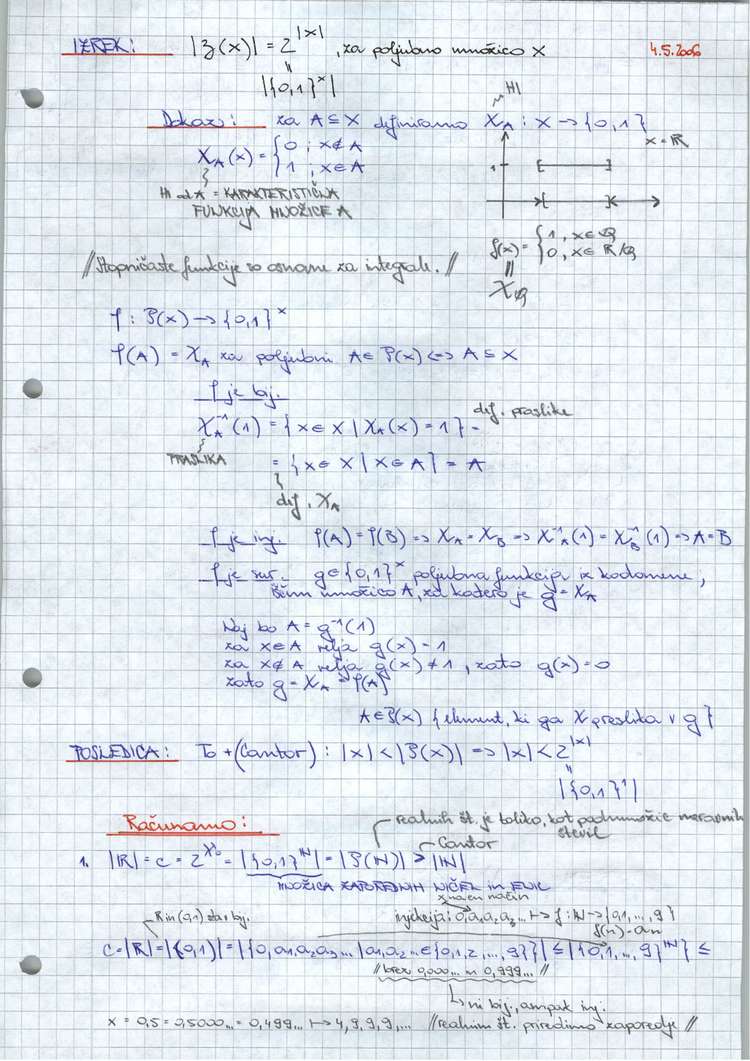 IZREK: |P(x)| = 2^|x| , za poljubno množico X 4.5.2006
|{0,1}^x|
Dokaz: za A ⊆ X definiramo χ_A : X → {0,1}
HI
x = R
χ_A(x) = { 0 ; x ∉ A
1 ; x ∈ A
1
HI od A = KARAKTERISTIČNA
FUNKCIJA MNOŽICE A
f(x) = { 1 , x ∈ Q
0 , x ∈ R \ Q
// Stopničaste funkcije so osnovne za integrale. //
χ_Q
φ : P(x) → {0,1}^x
φ(A) = χ_A za poljubni A ∈ P(x) <=> A ⊆ X
φ je bij.
χ_A^-1(1) = { x ∈ X | χ_A(x) = 1 } = def. praslike
PRASLIKA = { x ∈ X | x ∈ A } = A
def. χ_A
φ je inj. φ(A) = φ(B) => χ_A = χ_B => χ_A^-1(1) = χ_B^-1(1) => A = B
φ je sur. g ∈ {0,1}^x poljubna funkcija iz kodomene;
iščemo množico A, za katero je g = χ_A
Naj bo A = g^-1(1)
za x ∈ A velja g(x) = 1
za x ∉ A velja g(x) ≠ 1 , zato g(x) = 0
zato g = χ_A = φ(A)
A ∈ P(x) { element, ki ga χ preslika v g }
POSLEDICA: To + (Cantor) : |x| < |P(x)| => |x| < 2^|x|
|{0,1}^x|
Računamo:
realnih št. je toliko, kot podmnožic naravnih
števil
Cantor
1. |R| = c = 2^ℵ₀ = |{0,1}^N| = |P(N)| > |N|
MNOŽICA ZAPOREDNIH NIČEL in ENIC
na en način
R in (0,1) sta bij. injekcija: 0,a₁a₂a₃... ↦ f : N → {0,1,...,9}
f(n) = a_n
c = |R| = |(0,1)| = |{0,a₁a₂a₃... | a₁,a₂... ∈ {0,1,2,...,9}}| ≤ |{0,1,...,9}^N| ≤
// brez 0,000... in 0,999... //
ni bij., ampak inj.
x = 0,5 = 0,5000... = 0,499... ↦ 4,9,9,9,... // realnim št. priredimo zaporedje //